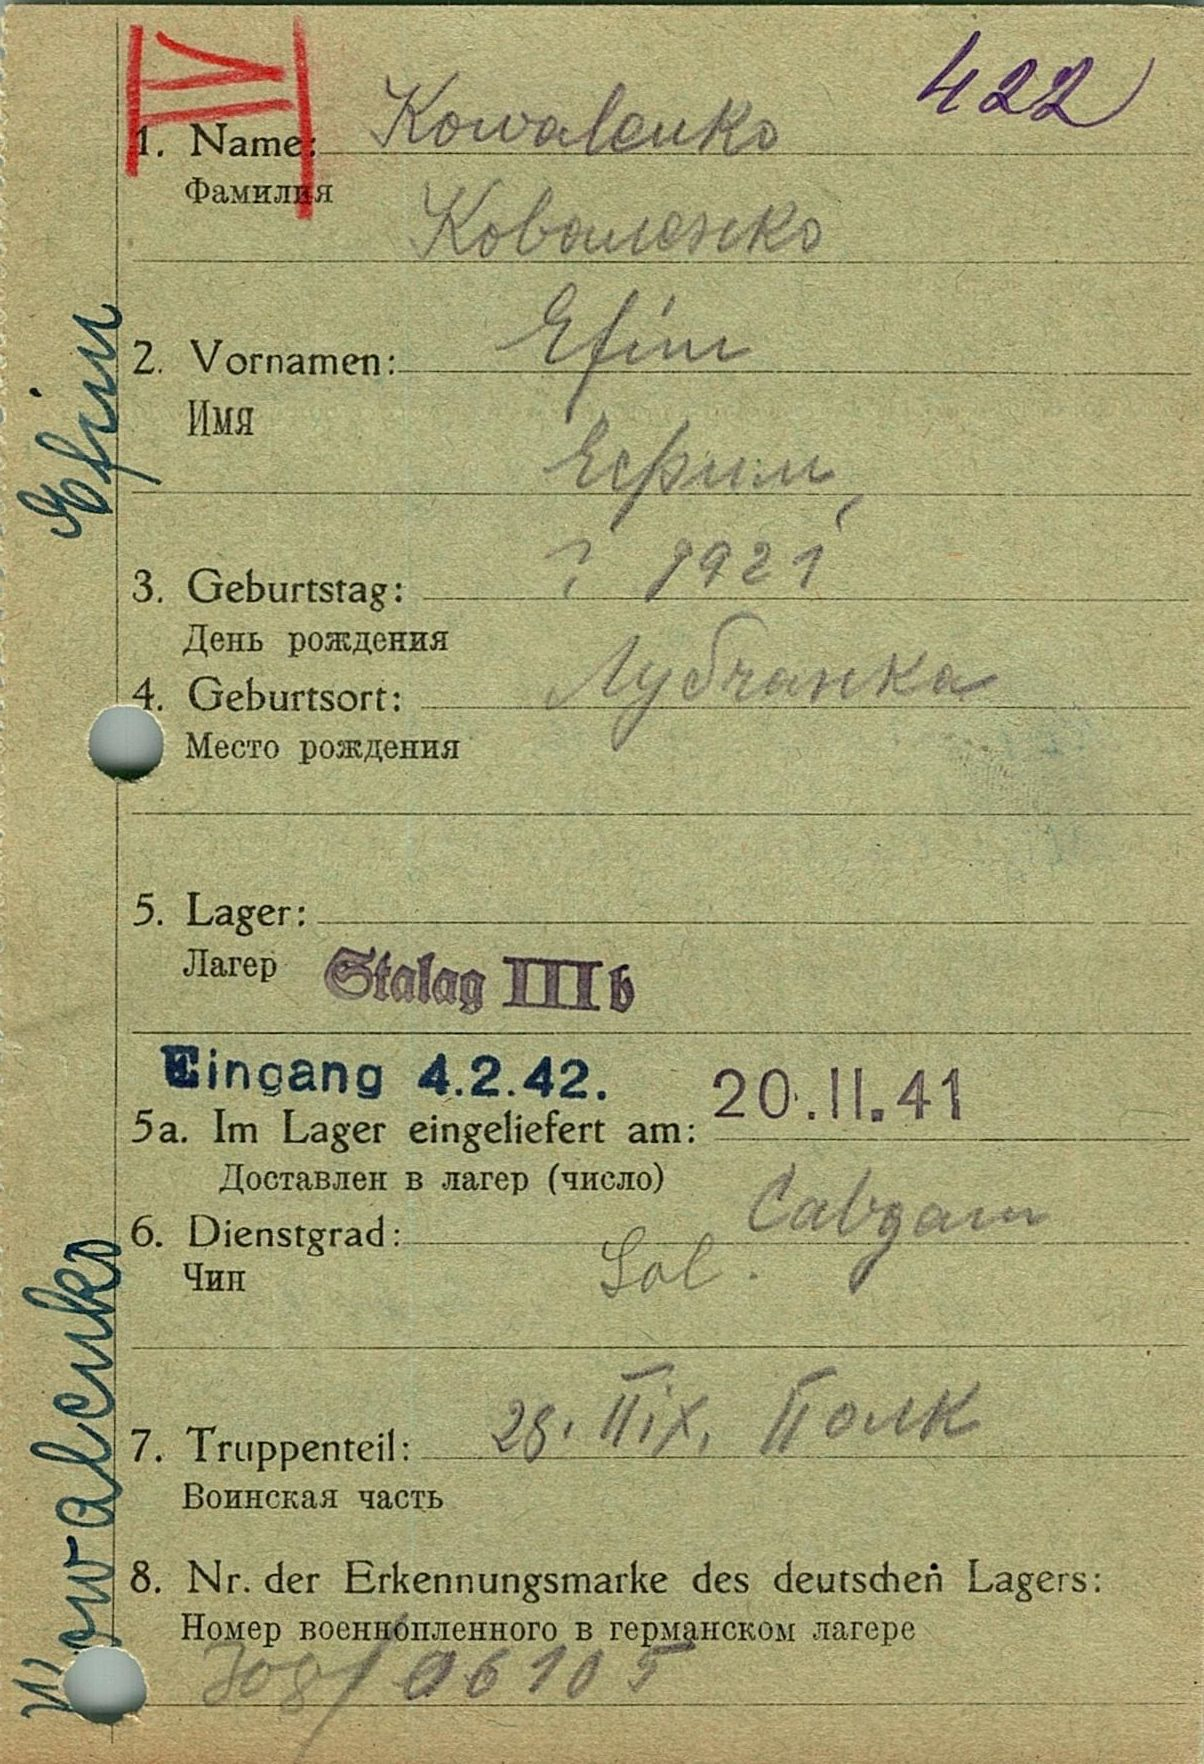 IV
422
1. Name: Kowalenko
Фамилия
Коваленко
2. Vornamen: Efim
Имя
Ефим
3. Geburtstag: ? 1921
День рождения
4. Geburtsort: Лубчанка
Место рождения
5. Lager:
Лагер Stalag III b
Eingang 4.2.42. 20.11.41
5a. Im Lager eingeliefert am:
Доставлен в лагер (число)
6. Dienstgrad:
Чин Sol.
7. Truppenteil: 28. Полк
Воинская часть
8. Nr. der Erkennungsmarke des deutschen Lagers:
Номер военнопленного в германском лагере
308/06105
Efim
Kowalenko